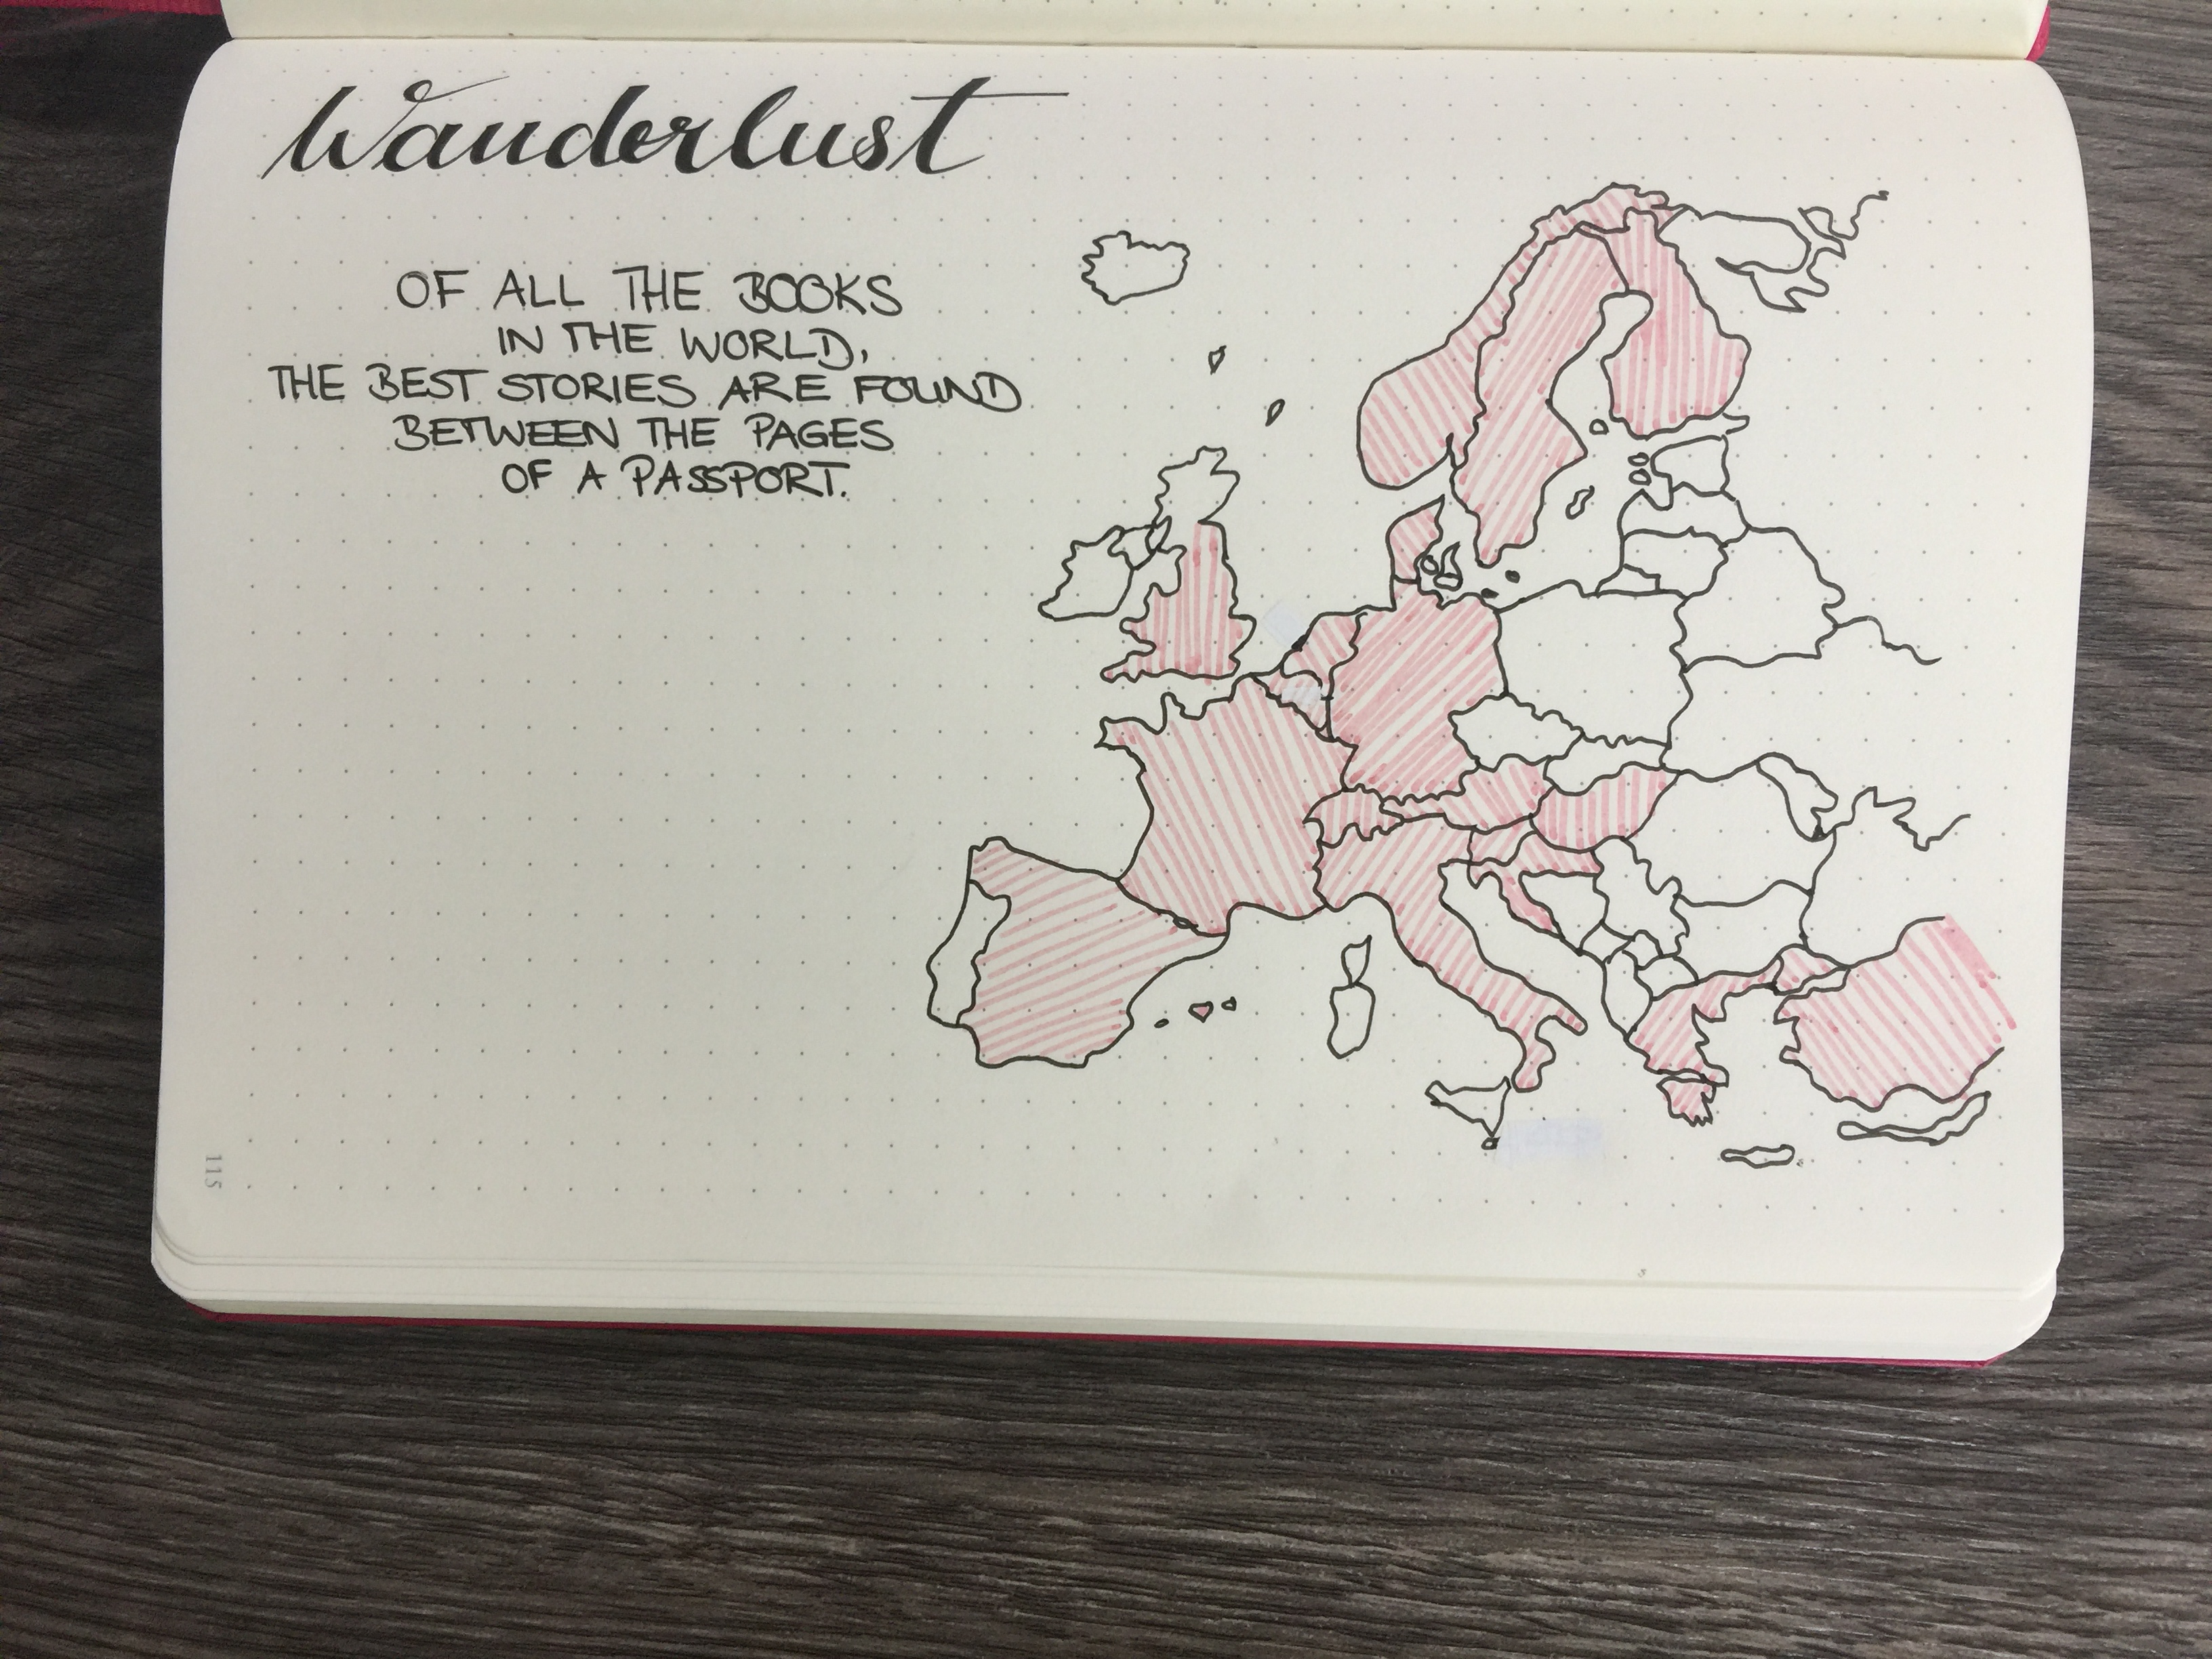 Wanderlust
OF ALL THE BOOKS
IN THE WORLD,
THE BEST STORIES ARE FOUND
BETWEEN THE PAGES
OF A PASSPORT.
115